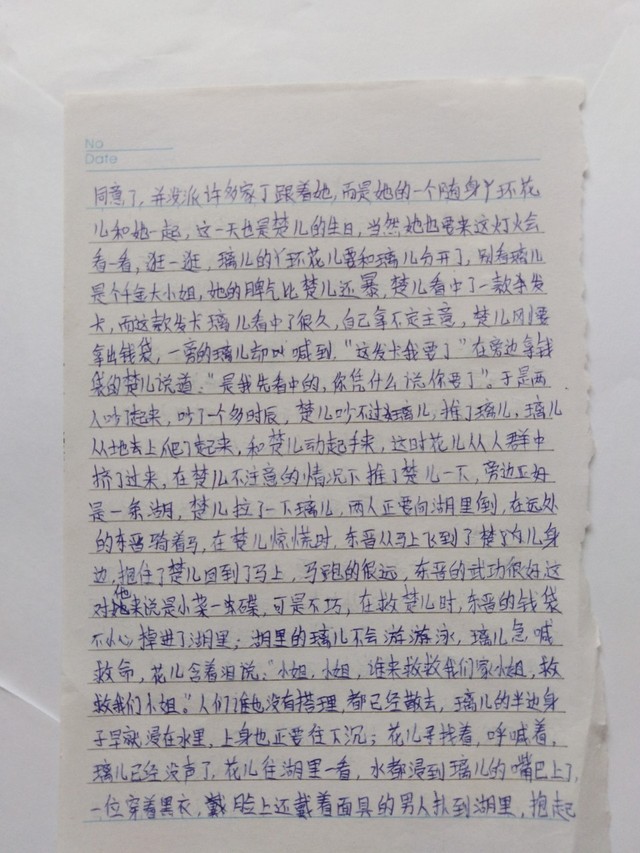 No
Date
同意了,并没派许多家丁跟着她,而是她的一个随身丫环花
儿和她一起,这一天也是楚儿的生日,当然她也要来这灯火会
看一看,逛一逛,璃儿的丫环花儿要和璃儿分开了,别看璃儿
是个千金大小姐,她的脾气比楚儿还暴,楚儿看中了一款发
卡,而这款发卡璃儿看中了很久,自己拿不定主意,楚儿刚要
拿出钱袋,一旁的璃儿却叫喊到,“这发卡我要了”在旁边拿钱
袋的楚儿说道:“是我先看中的,你凭什么说你要了”。于是两
人吵了起来,吵了一个多时辰,楚儿吵不过璃儿,推了璃儿,璃儿
从地上爬了起来,和楚儿动起手来,这时花儿从人群中
挤了过来,在楚儿不注意的情况下推了楚儿一下,旁边正好
是一条湖,楚儿拉了一下璃儿,两人正要向湖里倒,在远处
的东晋骑着马,在楚儿惊慌时,东晋从马上飞到了楚儿身
边,抱住了楚儿回到了马上,马跑的很远,东晋的武功很好这
对他来说是小菜一碟,可是不巧,在救楚儿时,东晋的钱袋
不小心掉进了湖里;湖里的璃儿不会游游泳,璃儿急喊
救命,花儿含着泪说:“小姐,小姐,谁来救救我们家小姐,救
救我们小姐。”人们谁也没有搭理,都已经散去,璃儿的半边身
子早就浸在水里,上身也正要往下沉;花儿寻找着,呼喊着,
璃儿已经没声了,花儿往湖里一看,水都浸到璃儿的嘴巴上了,
一位穿着黑衣,戴脸上还戴着面具的男人扑到湖里,抱起